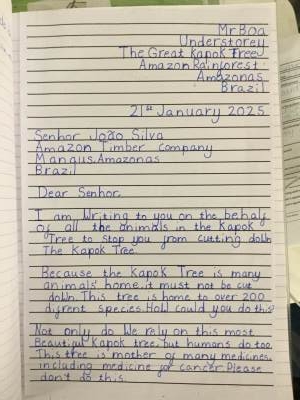 Mr Boa
Understorey
The Great Kapok Tree
Amazon Rainforest
Amazonas
Brazil
21st January 2025
Senhor João Silva
Amazon Timber Company
Manaus, Amazonas
Brazil
Dear Senhor,
I am writing to you on the behalf
of all the animals in the Kapok
Tree to stop you from cutting down
The Kapok Tree.
Because the Kapok Tree is many
animals home, it must not be cut
down. This tree is home to over 200
difrent species. How could you do this?
Not only do we rely on this most
Beautiful Kapok tree, but humans do too.
This tree is mother of many medicines,
including medicine for cancer. Please
don't do this.